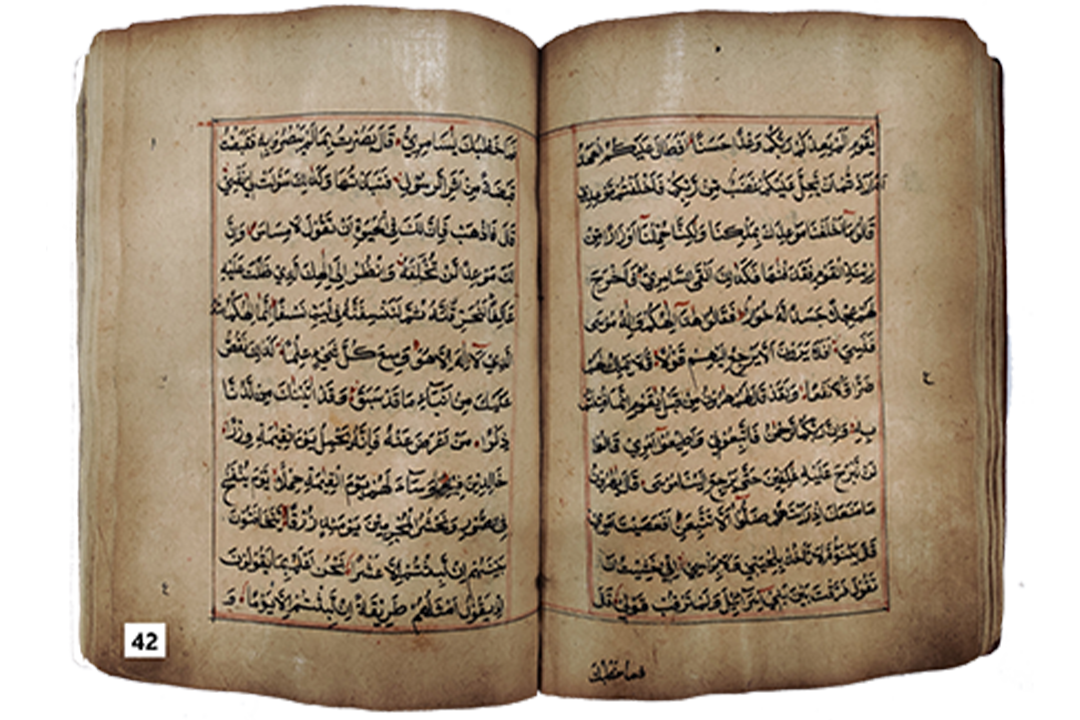 يٰقَوْمِ اَلَمْ يَعِدْكُمْ رَبُّكُمْ وَعْدًا حَسَنًا اَفَطَالَ عَلَيْكُمُ الْعَهْدُ
اَمْ اَرَدْتُّمْ اَنْ يَحِلَّ عَلَيْكُمْ غَضَبٌ مِنْ رَبِّكُمْ فَاَخْلَفْتُمْ مَوْعِدِي
قَالُوا مَا اَخْلَفْنَا مَوْعِدَكَ بِمَلْكِنَا وَلٰكِنَّا حُمِّلْنَا اَوْزَارًا مِنْ
زِينَةِ الْقَوْمِ فَقَذَفْنٰهَا فَكَذٰلِكَ اَلْقَى السَّامِرِيُّ فَاَخْرَجَ
لَهُمْ عِجْلًا جَسَدًا لَهُ خُوَارٌ فَقَالُوا هٰذَا اِلٰهُكُمْ وَاِلٰهُ مُوسَى
فَنَسِيَ اَفَلَا يَرَوْنَ اَلَّا يَرْجِعُ اِلَيْهِمْ قَوْلًا وَلَا يَمْلِكُ لَهُمْ
ضَرًّا وَلَا نَفْعًا وَلَقَدْ قَالَ لَهُمْ هٰرُونُ مِنْ قَبْلُ يٰقَوْمِ اِنَّمَا فُتِنْتُمْ
بِهِ وَاِنَّ رَبَّكُمُ الرَّحْمٰنُ فَاتَّبِعُونِي وَاَطِيعُوا اَمْرِي قَالُوا
لَنْ نَبْرَحَ عَلَيْهِ عٰكِفِينَ حَتَّى يَرْجِعَ اِلَيْنَا مُوسَى قَالَ يٰهٰرُونُ
مَا مَنَعَكَ اِذْ رَاَيْتَهُمْ ضَلُّوا اَلَّا تَتَّبِعَنِ اَفَعَصَيْتَ اَمْرِي
قَالَ يَبْنَؤُمَّ لَا تَاْخُذْ بِلِحْيَتِي وَلَا بِرَاْسِي اِنِّي خَشِيتُ اَنْ
تَقُولَ فَرَّقْتَ بَيْنَ بَنِي اِسْرَائِيلَ وَلَمْ تَرْقُبْ قَوْلِي قَالَ
فما خطبك
فَمَا خَطْبُكَ يٰسَامِرِيُّ قَالَ بَصُرْتُ بِمَا لَمْ يَبْصُرُوا بِهِ فَقَبَضْتُ
قَبْضَةً مِنْ اَثَرِ الرَّسُولِ فَنَبَذْتُهَا وَكَذٰلِكَ سَوَّلَتْ لِي نَفْسِي
قَالَ فَاذْهَبْ فَاِنَّ لَكَ فِي الْحَيٰوةِ اَنْ تَقُولَ لَا مِسَاسَ وَاِنَّ
لَكَ مَوْعِدًا لَنْ تُخْلَفَهُ وَانْظُرْ اِلَى اِلٰهِكَ الَّذِي ظَلْتَ عَلَيْهِ
عَاكِفًا لَنُحَرِّقَنَّهُ ثُمَّ لَنَنْسِفَنَّهُ فِي الْيَمِّ نَسْفًا اِنَّمَا اِلٰهُكُمُ اللّٰهُ
الَّذِي لَا اِلٰهَ اِلَّا هُوَ وَسِعَ كُلَّ شَيْءٍ عِلْمًا كَذٰلِكَ نَقُصُّ
عَلَيْكَ مِنْ اَنْبَاءِ مَا قَدْ سَبَقَ وَقَدْ اٰتَيْنٰكَ مِنْ لَدُنَّا
ذِكْرًا مَنْ اَعْرَضَ عَنْهُ فَاِنَّهُ يَحْمِلُ يَوْمَ الْقِيٰمَةِ وِزْرًا
خَالِدِينَ فِيهِ وَسَاءَ لَهُمْ يَوْمَ الْقِيٰمَةِ حِمْلًا يَوْمَ يُنْفَخُ
فِي الصُّورِ وَنَحْشُرُ الْمُجْرِمِينَ يَوْمَئِذٍ زُرْقًا يَتَخَافَتُونَ
بَيْنَهُمْ اِنْ لَبِثْتُمْ اِلَّا عَشْرًا نَحْنُ اَعْلَمُ بِمَا يَقُولُونَ
اِذْ يَقُولُ اَمْثَلُهُمْ طَرِيقَةً اِنْ لَبِثْتُمْ اِلَّا يَوْمًا وَ
42